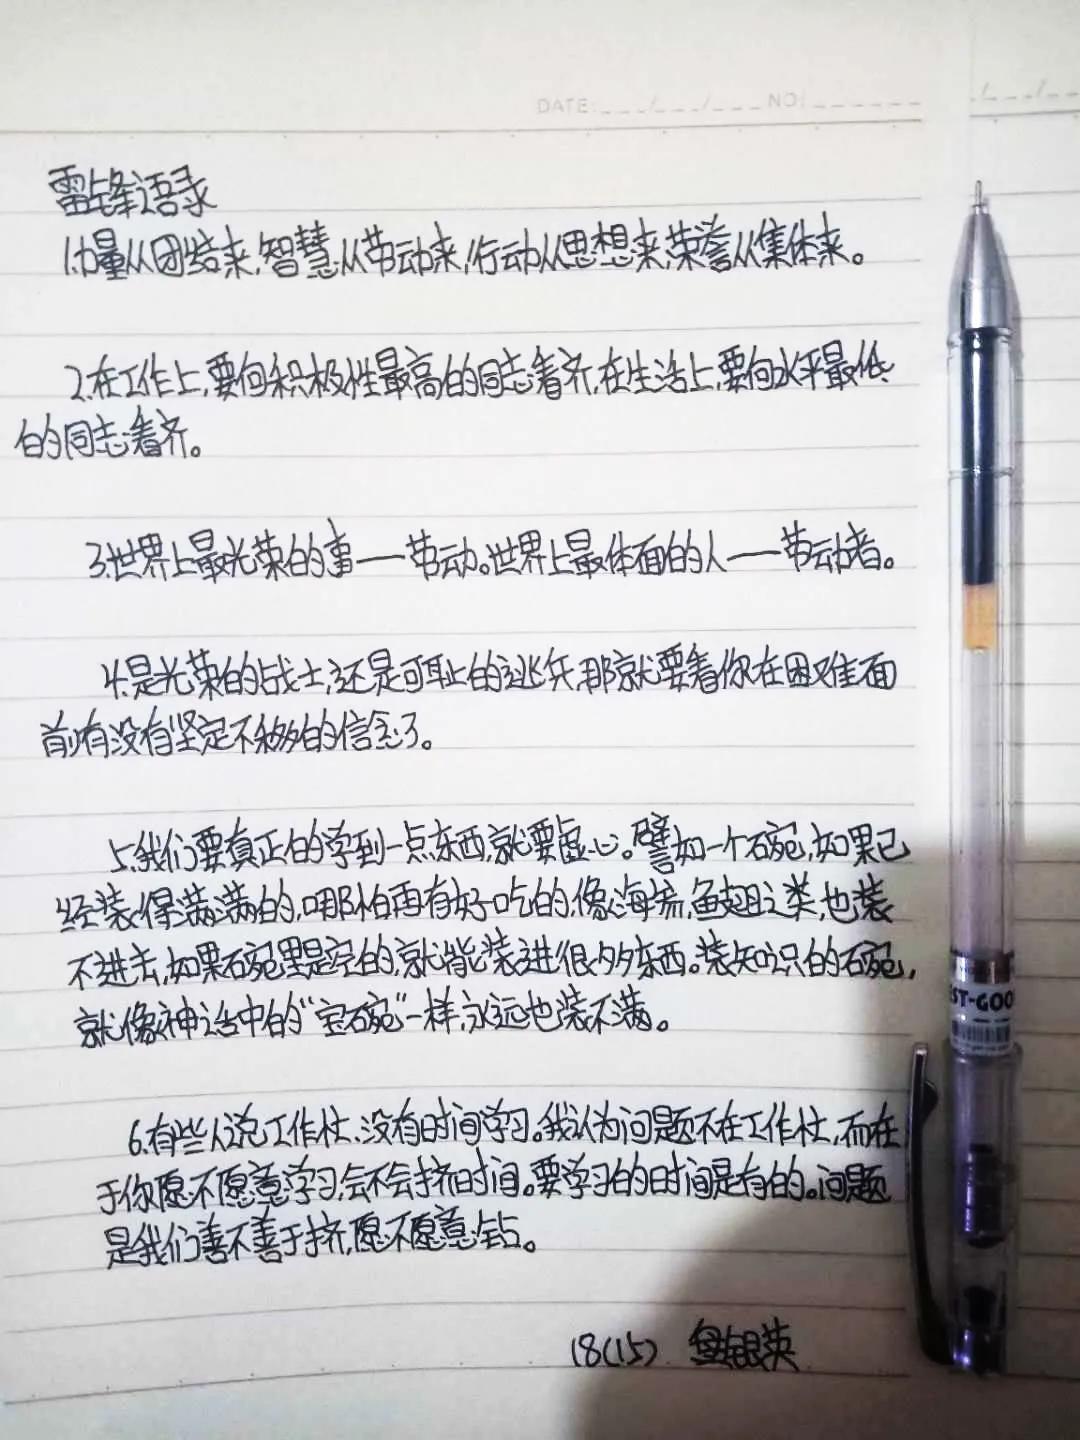 DATE: NO:
雷锋语录
1.力量从团结来,智慧从劳动来,行动从思想来,荣誉从集体来。
2.在工作上,要向积极性最高的同志看齐,在生活上,要向水平最低
的同志看齐。
3.世界上最光荣的事——劳动。世界上最体面的人——劳动者。
4.是光荣的战士,还是可耻的逃兵,那就要看你在困难面
前有没有坚定不移的信念了。
5.我们要真正的学到一点东西,就要虚心。譬如一个碗,如果已
经装得满满的,哪怕再有好吃的,像海 ,鱼翅之类,也装
不进去,如果碗里是空的,就能装进很多东西。装知识的碗,
就像神话中的“宝碗”一样,永远也装不满。
6.有些人说工作忙、没有时间学习。我认为问题不在工作忙,而在
于你愿不愿意学习,会不会挤时间。要学习的时间是有的。问题
是我们善不善于挤,愿不愿意钻。
18(15) 银英
ST-GOO